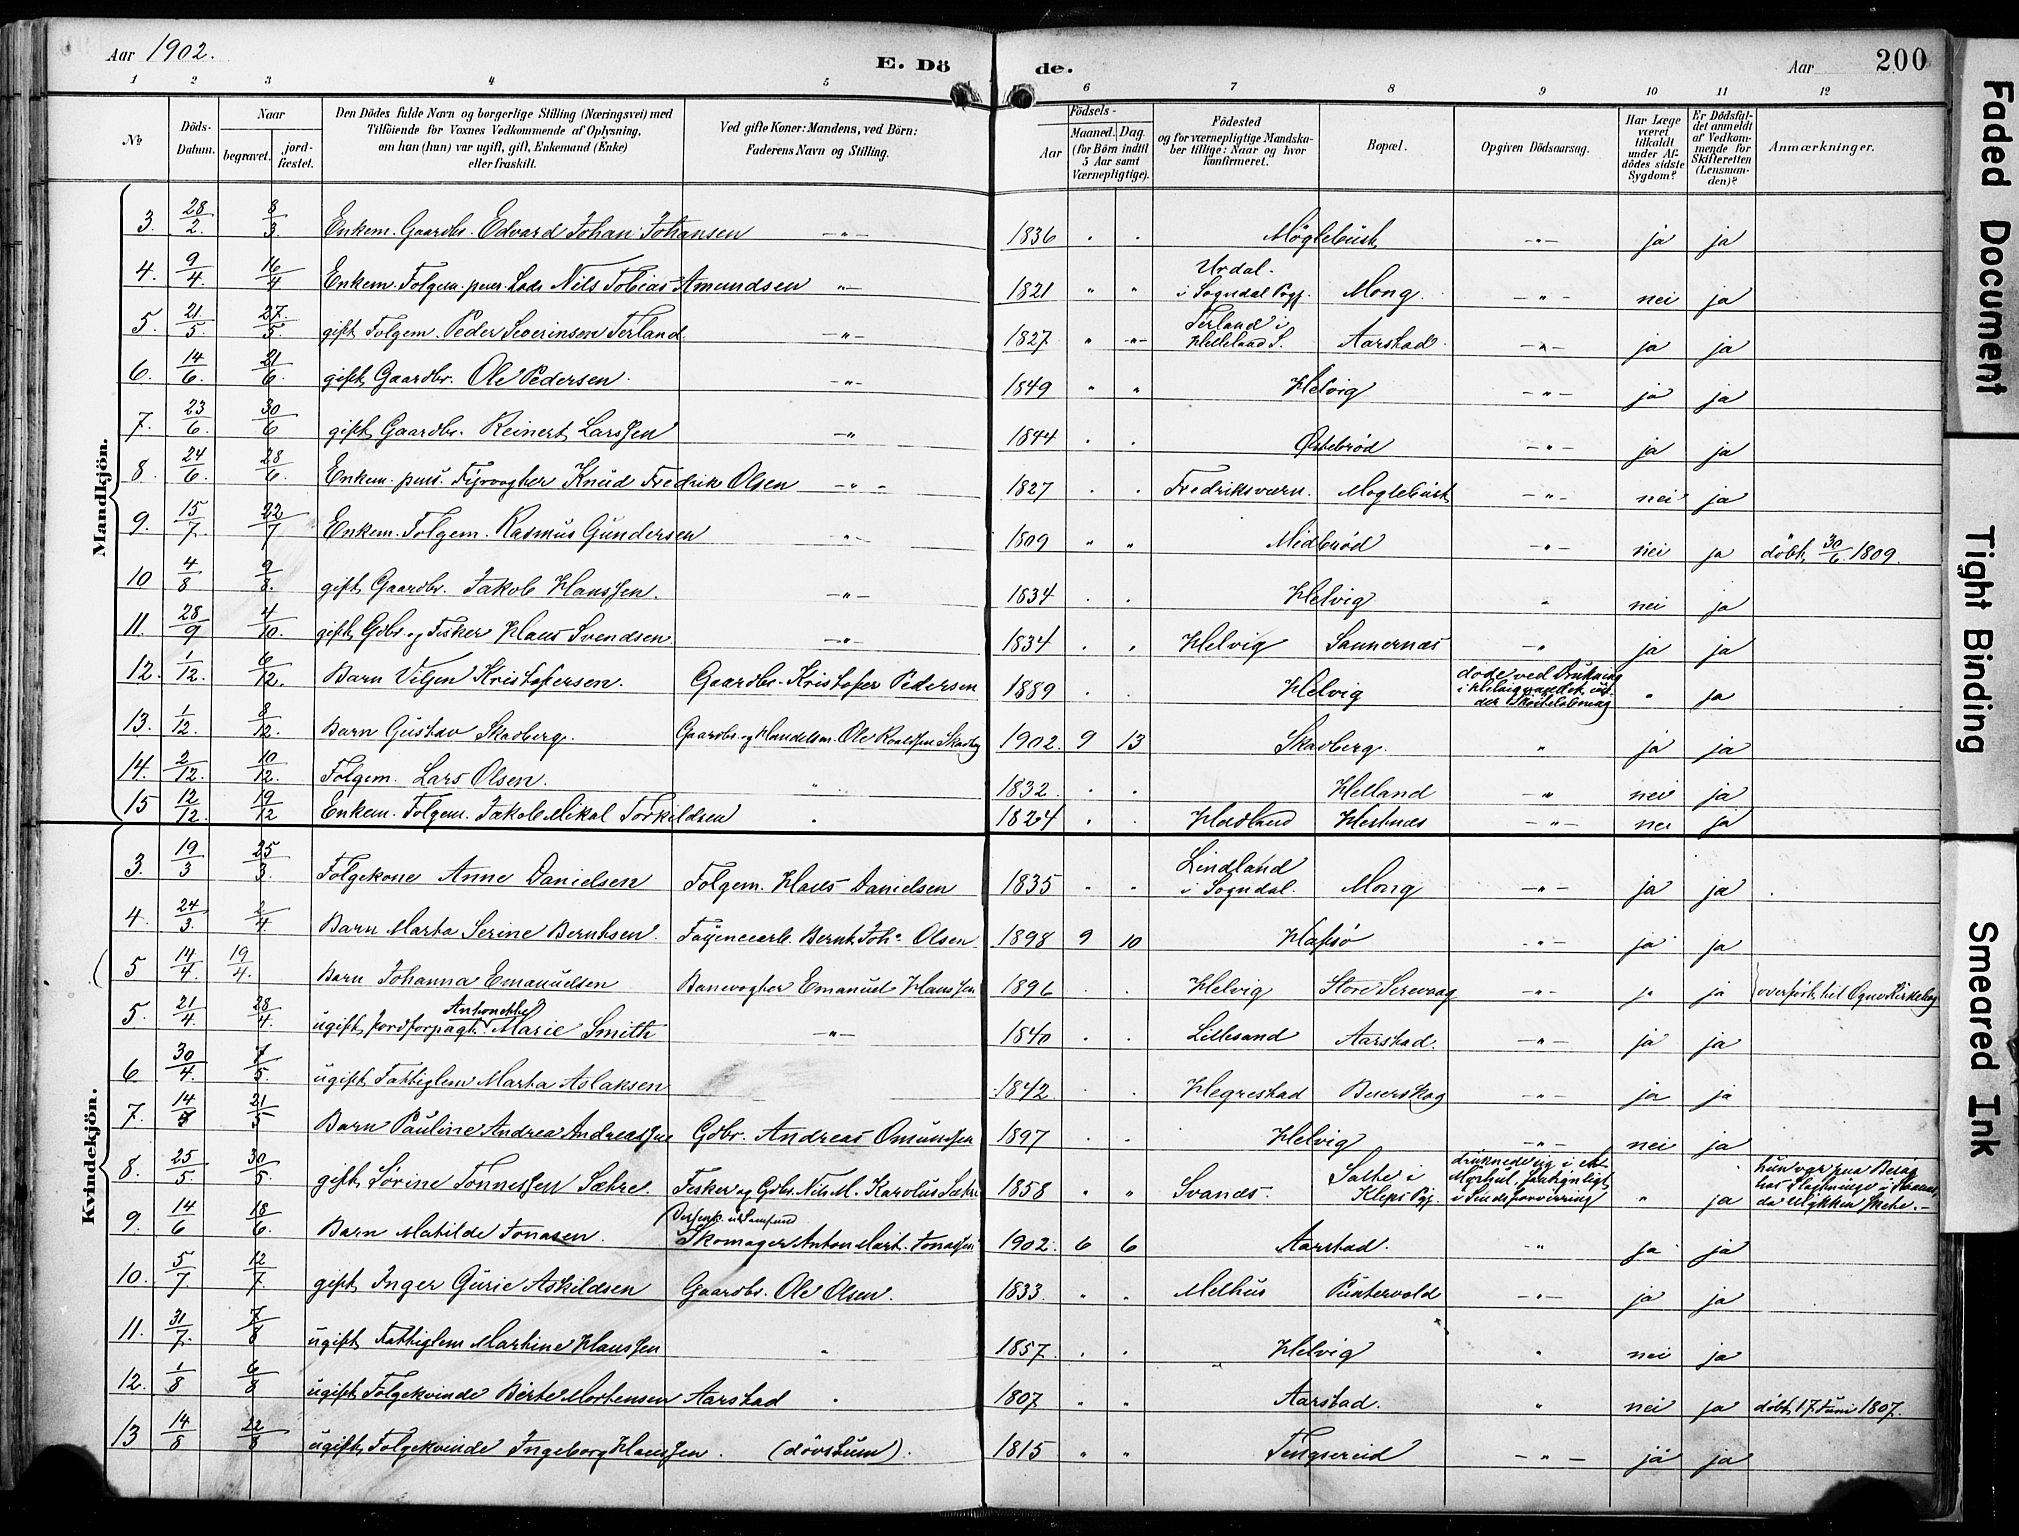 Aar 1902.
E. Dö de.
Aar
200
1 2 3 4 5 6 7 8 9 10 11 12
No
Döds-Datum.
Naar
begravet.
jord-fæstet.
Den Dödes fulde Navn og borgerlige Stilling (Næringsvei) med
Tilföiende for Voxnes Vedkommende af Oplysning,
om han (hun) var ugift, gift, Enkemand (Enke)
eller fraskilt.
Ved gifte Koner: Mandens, ved Börn:
Faderens Navn og Stilling.
Födsels-
Aar
Maaned. Dag.
(for Börn indtil
5 Aar samt
Værnepligtige).
Födested
og for værnepligtige Mandska-
ber tillige: Naar og hvor
konfirmeret.
Bopæl.
Opgiven Dödsaarsag.
Har Læge
været
tilkaldt
under Af-
dödes sidste
Sygdom?
Er Dödsfal-
det anmeldt
af Vedkom-
mende for
Skifteretten
(Lensman-
den)?
Anmærkninger.
Mandkjön.
3. 28/2 8/3 Enkem. Gaardbr. Edvard Johan Johansen -"- 1836 Møglebust -"- ja ja
4. 9/4 16/4 Enkem. Folgem. Nils Tobias Amundsen "- 1821 " " Urdal i Sogndal Pgj. Mong. -"- nei ja
5. 21/5. 27/5. gift Folgem. Peder Severinsen Terland -"- 1827 " -"- Terland i Helleland S. Aarstad. -"- ja ja
6. 14/6. 21/6. gift Gaardbr. Ole Pedersen. -"- 1849 " " Helvig -"- ja ja
7. 23/6. 30/6 gift Gaardbr. Reinert Larssen -" 1844 Østebrød -"- ja ja
8. 24/6. 28/6. Enkem. pens. Fyrvogter Knud Fredrik Olsen -"- 1827 Fredriksværn. Moglebust -"- nei ja
9. 15/7. 22/7 Enkem. Folgem. Rasmus Gundersen "- 1809 " " Midbrød -"- nei ja døbt 30/6 1809.
10 4/8 9/8. gift Gaardbr. Jakob Hanssen. -"- 1834 Helvig " nei ja
11. 28/9 4/10. gift Gdbr. og Fisker Hans Svendsen -"- 1834 Helvig Sannernæs " ja ja
12. 1/12. 6/12. Barn Viljen Kristofersen. Gaardbr. Kristofer Pedersen 1889 Helvig døde ved Drukning i Helvigvandet under Skøiteløbning " ja
13. 1/12. 8/12. Barn Gustav Skadberg. Gaardbr. og Handelsm. Ole Roaldsen Skadbg 1902. 9 13 Skadberg. " ja ja
14. 2/12. 10/12. Folgem. Lars Olsen. " 1832 Helland " nei ja
15 12/12. 19/12 Enkem. Folgem. Jakob Mikal Torkildsen 1824 Hadland Hestnes -"- nei ja
Kvindekjön.
3. 19/3 25/3. Folgekone Anne Danielsen Folgem. Hans Danielsen 1835 Lindland i Sogndal. Mong -"- ja ja
4. 24/3. 2/4. Barn Marta Serine Berntsen. Fajencearb. Bernt Joh. Olsen 1898 9 10 Hafsø -"- ja ja
(5 14/4. 19/4. Barn Johanna Emanuelsen Banevogter Emanuel Hanssen 1896 Helvig Store Sirevaag -"- ja ja overført til Ogna Kirkebog
5. 21/4. 28/4. ugift Jordforpagt. Antonette Marie Smith -"- 1840 Lillesand Aarstad. -"- ja ja
6 30/4. 7/5. ugift Fattiglem Marta Aslaksen 1842 Hegrestad Beverskog -"- ja ja
7. 14/5 21/5 Barn Pauline Andrea Andreassen Gdbr. Andreas Omundsen 1897 Helvig -"- nei ja
8. 25/5 30/5. gift Sørine Tønnessen Sæhre. Fisker og Gdbr. Nils M. Karolus Sæhre 1858 " " Svanes. Salte i Kleps Pgj. druknede sig i et i Sindsforvirring " ja hun var paa Besøg hos Slægtninge da Ulykken skete.-
9. 14/6 18/6. Barn Matilde Jonasen. Skomager Anton Mart. Jonassen 1902. 6 6 Aarstad. " ja ja
10. 5/7. 12/7. gift Inger Gurie Askildsen Gaardbr. Ole Olsen. 1833. " " Melhus Puntervold -"- ja ja
11. 31/7. 7/8 ugift Fattiglem Martine Hanssen " 1857. Helvig " nei ja
12. 1/8 6/8 ugift Folgekvinde Berte Mortensen Aarstad " 1807 " " Aarstad. " nei ja døbt 17 Juni 1807.
13 14/8 22/8 ugift Folgekvinde Ingeborg Hanssen. (døvstum). 1815 " " Tengsereid -"- ja ja
Faded Document
Tight Binding
Smeared Ink